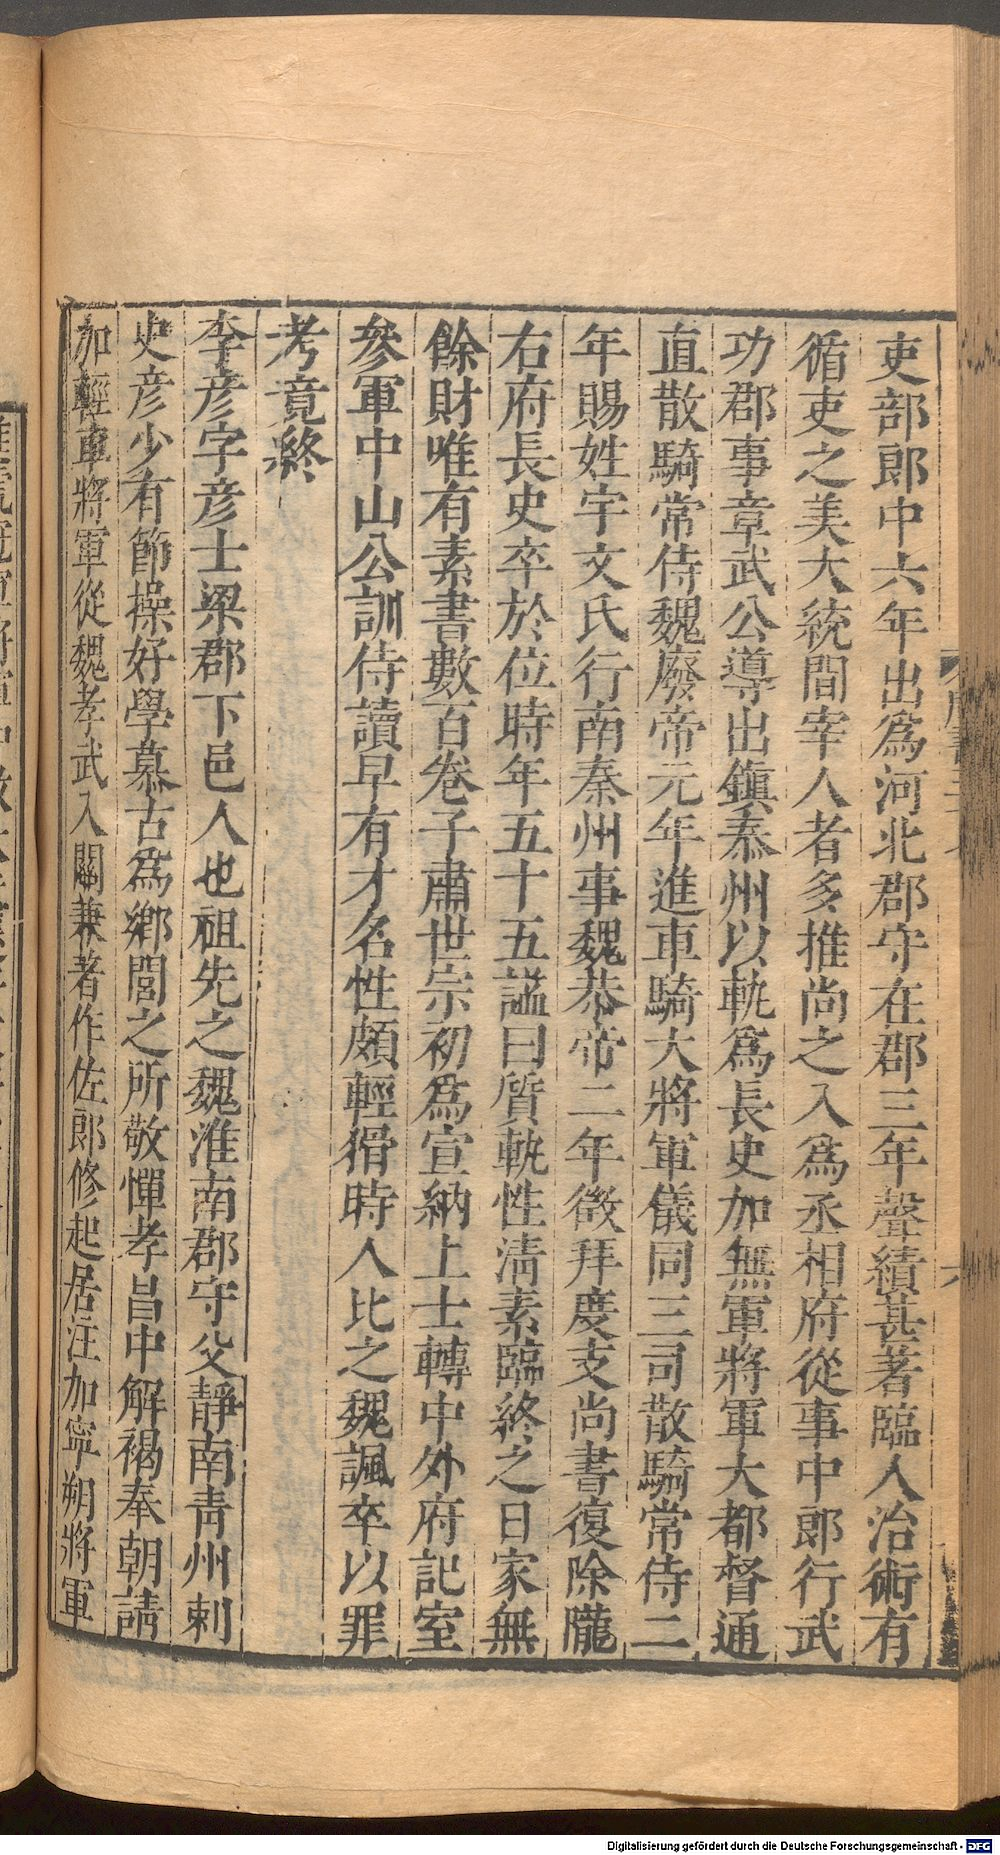 吏部郎中六年出爲河北郡守在郡三年聲績甚著臨人治術有
循吏之美大統間宰人者多推尚之入爲丞相府從事中郎行武
功郡事章武公導出鎮秦州以軌爲長史加無軍將軍大都督通
直散騎常侍魏廢帝元年進車騎大將軍儀同三司散騎常侍二
年賜姓宇文氏行南秦州事魏恭帝二年徵拜度支尚書復除隴
右府長史卒於位時年五十五諡曰質軌性淸素臨終之日家無
餘財唯有素書數百卷子肅世宗初爲宣納上士轉中外府記室
參軍中山公訓侍讀早有才名性頗輕猾時人比之魏諷卒以罪
考竟終
李彥字彥士梁郡下邑人也祖先之魏淮南郡守父靜南靑州刺
史彥少有節操好學慕古爲鄉閭之所敬憚孝昌中解褐奉朝請
加輕車將軍從魏孝武入關兼著作佐郎修起居注加寧朔將軍
六
Digitalisierung gefördert durch die Deutsche Forschungsgemeinschaft - DFG